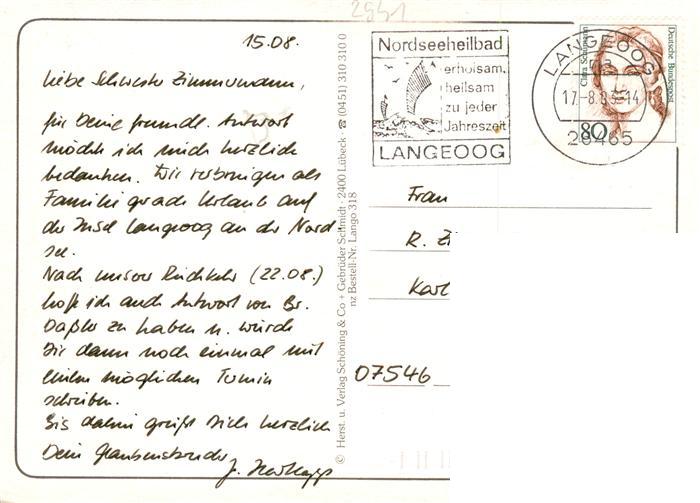 2931
15.08.
Liebe Schwester Zimmermann,
für Deine freundl. Antwort
möcht ich mich herzlich
bedanken. Wir verbringen als
Familie grade Urlaub auf
der Insel Langeoog an der Nord
see.
Nach unser Rückkehr (22.08.)
hoff ich auch Antwort von Br.
zu haben u. würde
Dir dann noch einmal mit
einem möglichen Termin
schreiben.
Bis dahin grüßt Dich herzlich
Dein Glaubensbruder
© Herst. u. Verlag Schöning & Co + Gebrüder Schmidt · 2400 Lübeck ☎ (0451) 310 310 0
nz Bestell-Nr. Lango 318
Nordseeheilbad
erholsam,
heilsam
zu jeder
Jahreszeit
LANGEOOG
LANGEOOG
17.-8.
-14
26465
Clara Schumann
Deutsche Bundespost
80
Frau
R. Z
Karl
07546